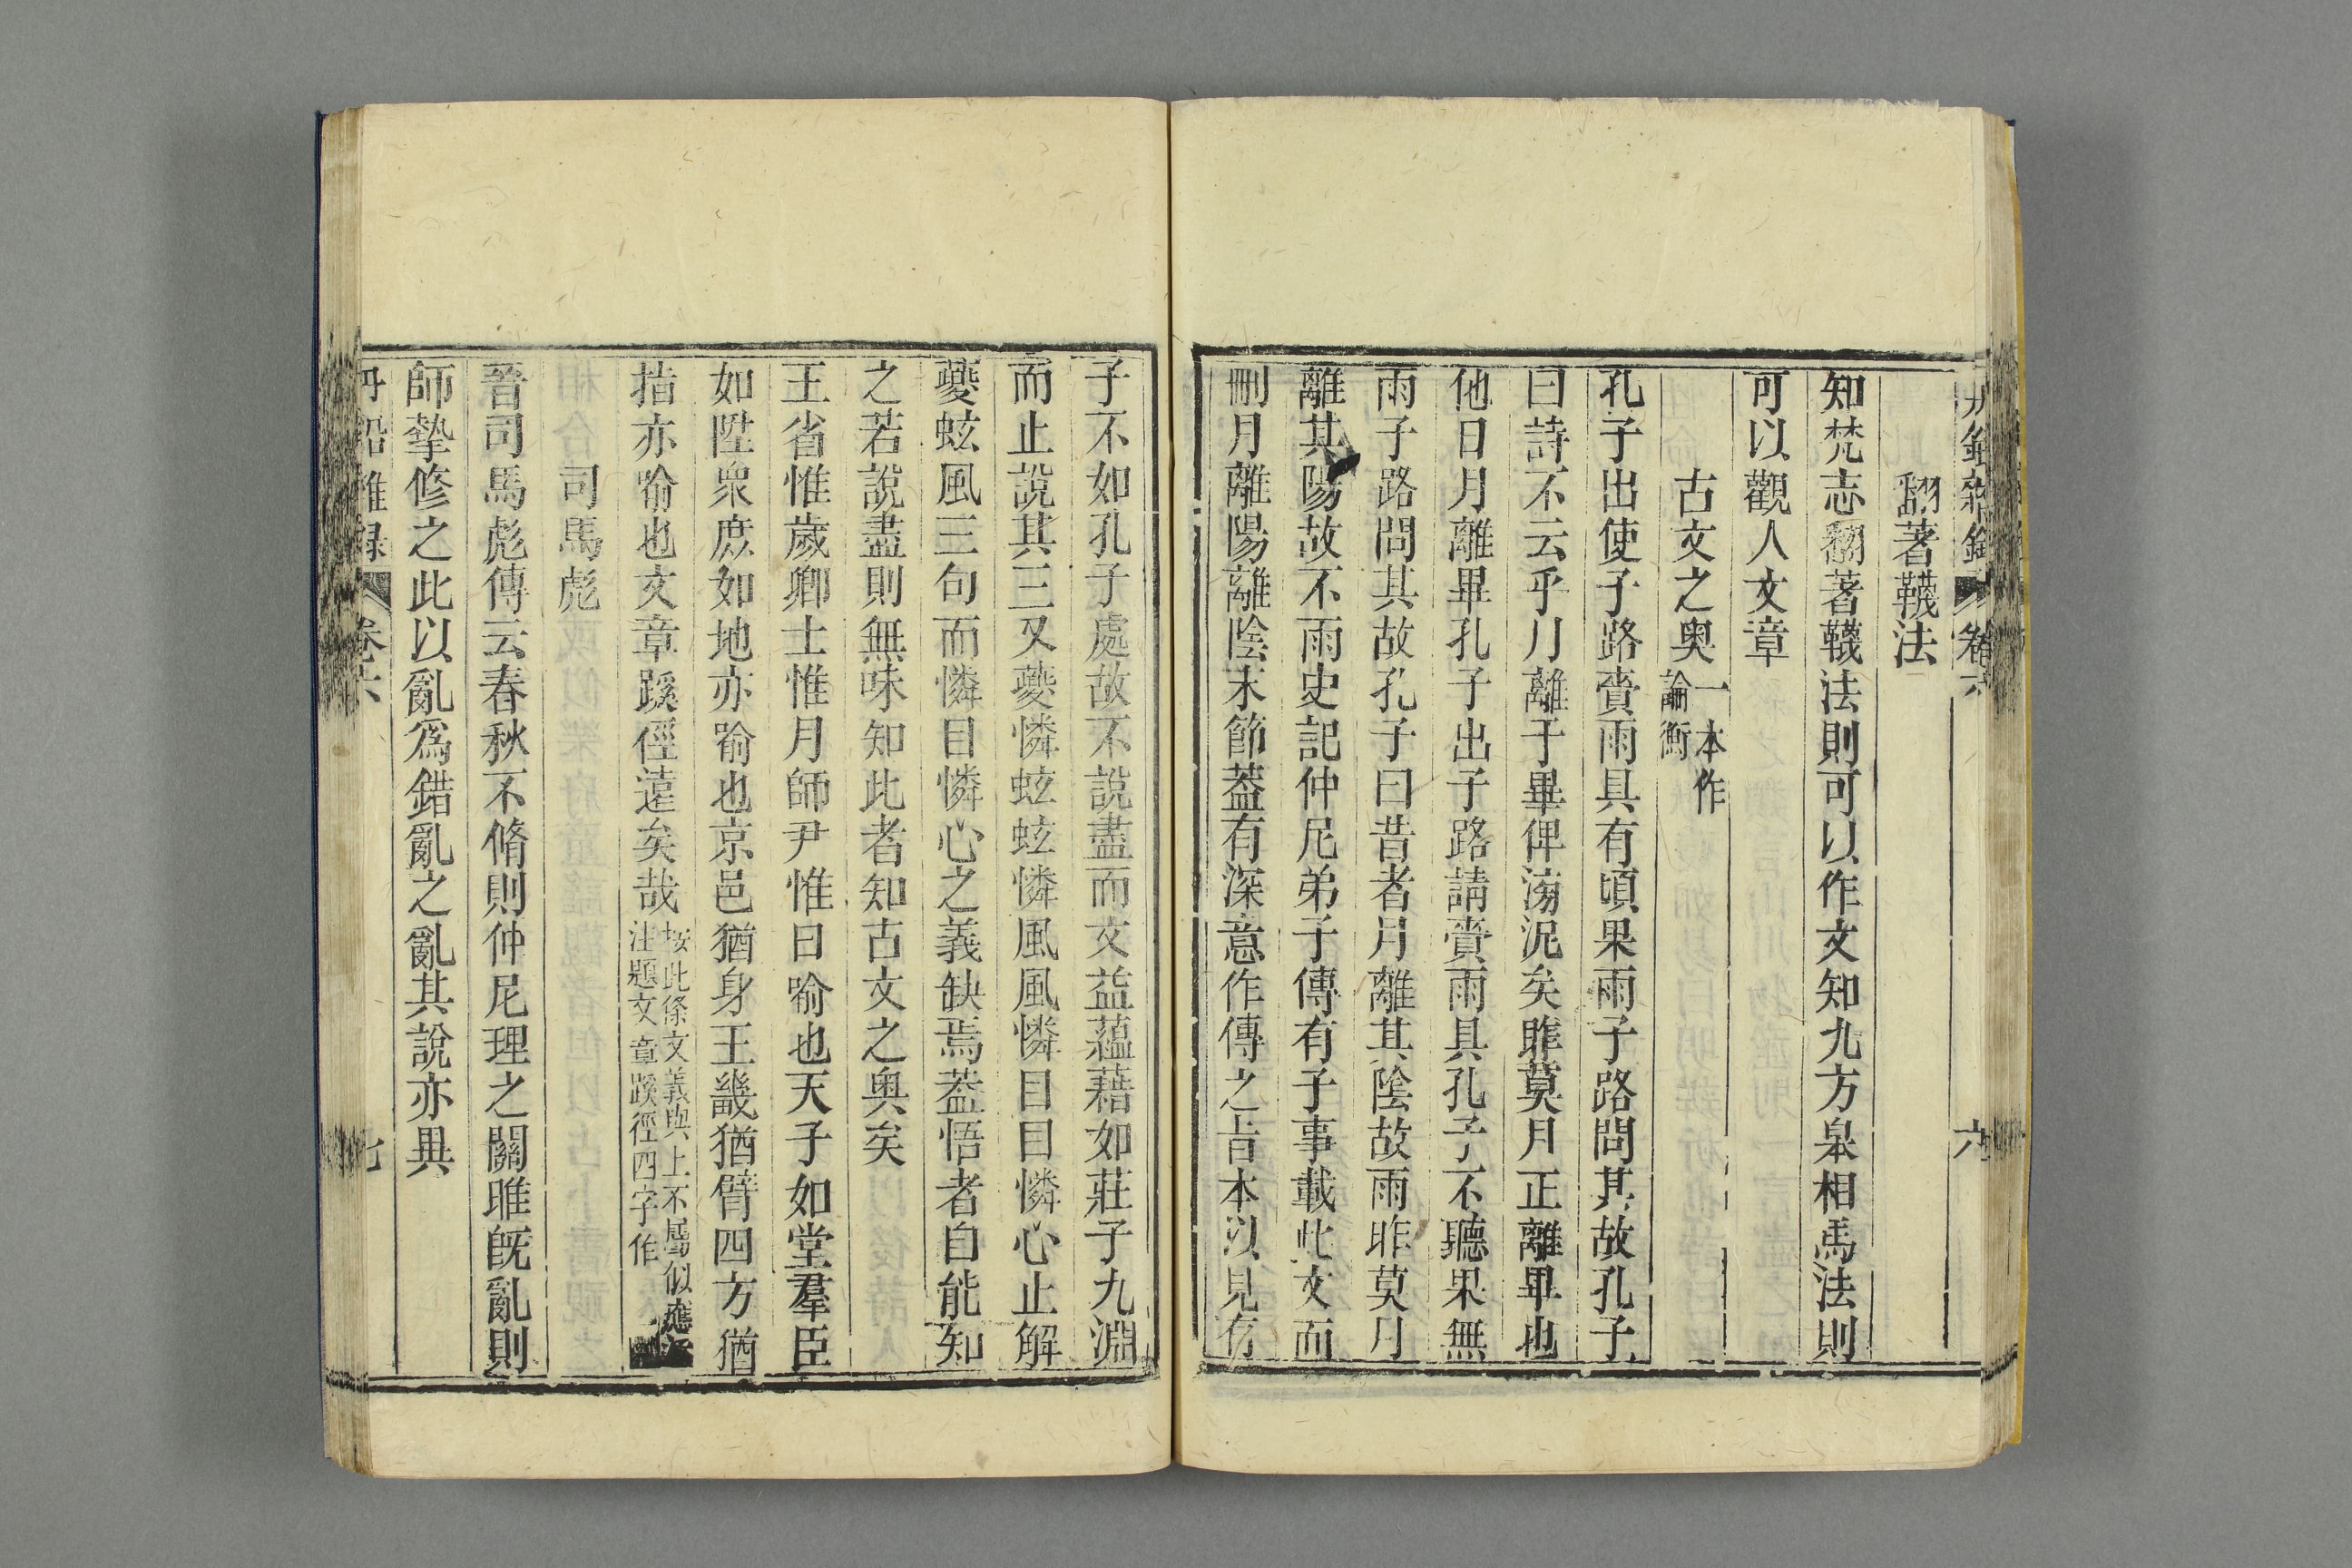 丹鉛雜錄 卷六 六
翻著韈法
知梵志翻著韈法則可以作文知九方臯相馬法則
可以觀人文章
古文之奥一本作論衡
孔子出使子路賫雨具有頃果雨子路問其故孔子
曰詩不云乎月離于畢俾滂沱矣昨莫月正離畢也
他日月離畢孔子出子路請賫雨具孔子不聽果無
雨子路問其故孔子曰昔者月離其陰故雨昨莫月
離其陽故不雨史記仲尼弟子傳有子事載此文而
刪月離陽離陰末節葢有深意作傳之旨本以見有
子不如孔子處故不說盡而文益蘊藉如莊子九淵
而止說其三又夔憐蚿蚿憐風風憐目目憐心止解
夔蚿風三句而憐目憐心之義缺焉葢悟者自能知
之若說盡則無味知此者知古文之奥矣
王省惟歲卿士惟月師尹惟日喻也天子如堂羣臣
如陞衆庶如地亦喻也京邑猶身王畿猶臂四方猶
指亦喻也文章蹊徑遠矣哉按此條文義與上不屬似應注題文章蹊徑四字作
司馬彪
晉司馬彪傳云春秋不脩則仲尼理之關雎旣亂則
師摯修之此以亂爲錯亂之亂其說亦異
丹鉛雜錄 卷六 七